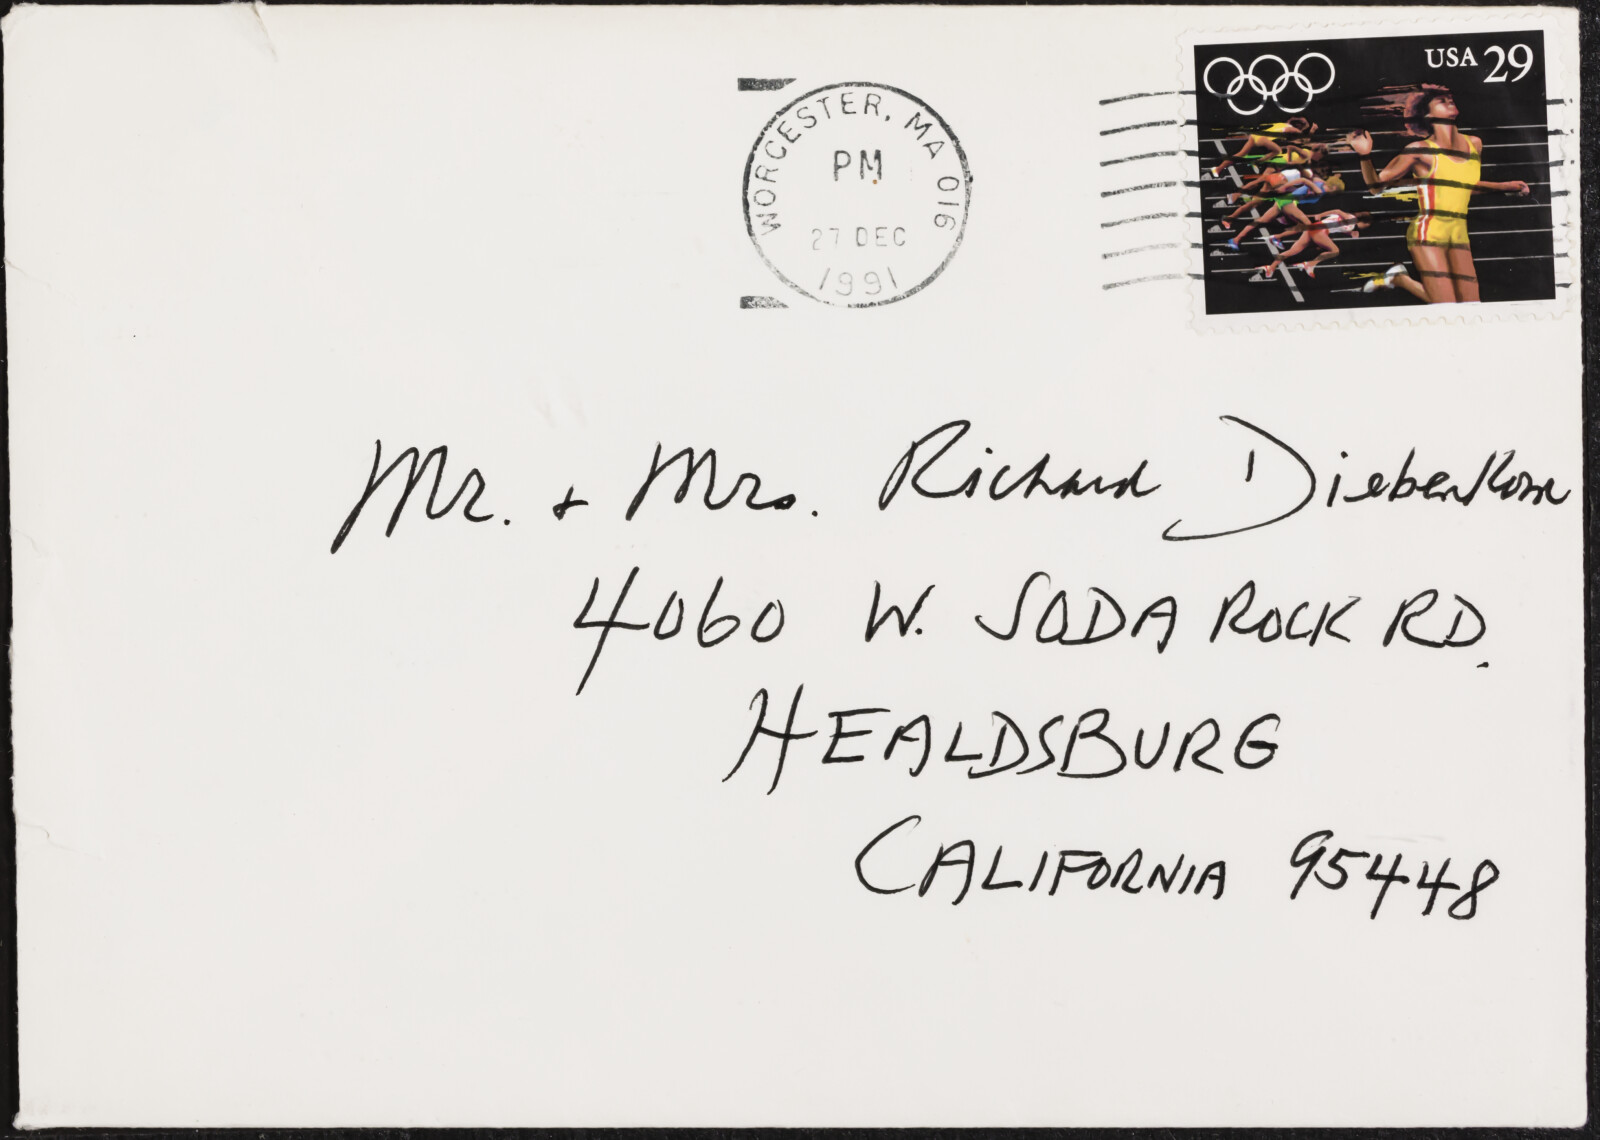 USA 29
WORCESTER, MA 016
PM
27 DEC
1991
Mr. + Mrs. Richard Diebenkorn
4060 W. SODA ROCK RD.
HEALDSBURG
CALIFORNIA 95448